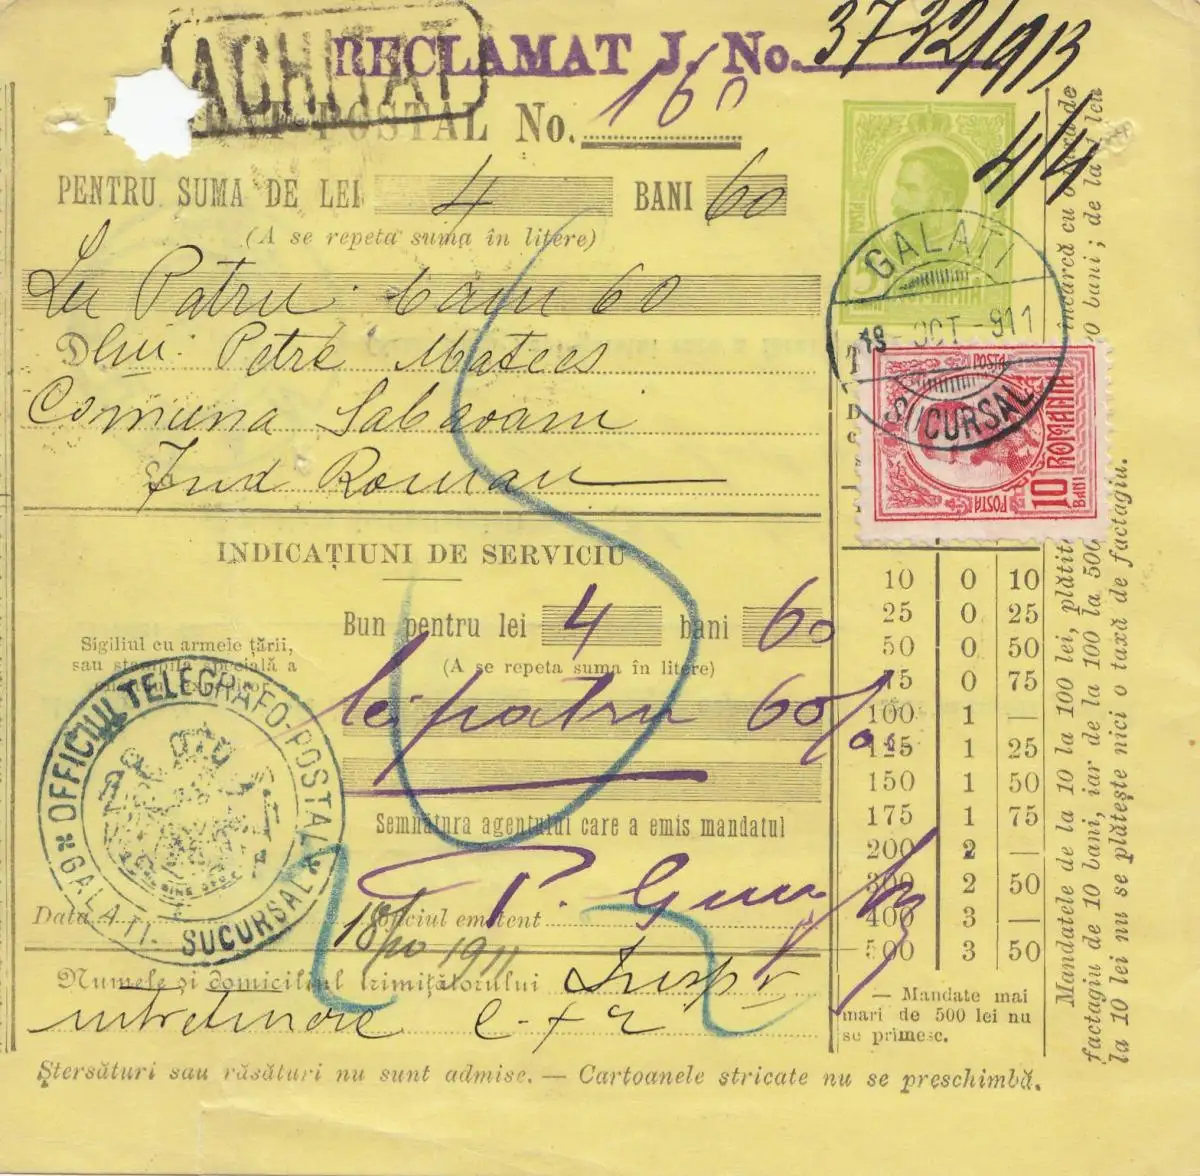 ACHITAT
RECLAMAT J. No. 3732/913
POSTAL No. 160
4/4
PENTRU SUMA DE LEI 4 BANI 60
(A se repeta suma în litere)
Lei Patru bani 60
Dlui Petre Matees
Comuna Sabaoani
Jud Roman
POSTA
5
ROMANIA
GALATI
18 OCT - 911
SUCURSAL
POSTA
10 ROMANIA
BANI
POSTA
INDICAȚIUNI DE SERVICIU
Bun pentru lei 4 bani 60
(A se repeta suma în litere)
lei patru 60
Sigiliul cu armele țării,
sau stampila specială a
OFICIUL TELEGRAFO-POSTAL
GALATI - SUCURSAL
Semnătura agentului care a emis mandatul
Data 18/10 1911 Oficiul emitent
Numele și domiciliul trimițătorului Insp
intretinere
10 0 10
25 0 25
50 0 50
75 0 75
100 1 —
125 1 25
150 1 50
175 1 75
200 2 —
300 2 50
400 3 —
500 3 50
— Mandate mai
mari de 500 lei nu
se primesc.
Mandatele de la 10 la 100 lei, plătite încarcă cu o de
factagiu de 10 bani, iar de la 100 la 500 bani; de la 1 leu
la 10 lei nu se plătește nici o taxă de factagiu.
Ștersături sau răsături nu sunt admise. — Cartoanele stricate nu se preschimbă.